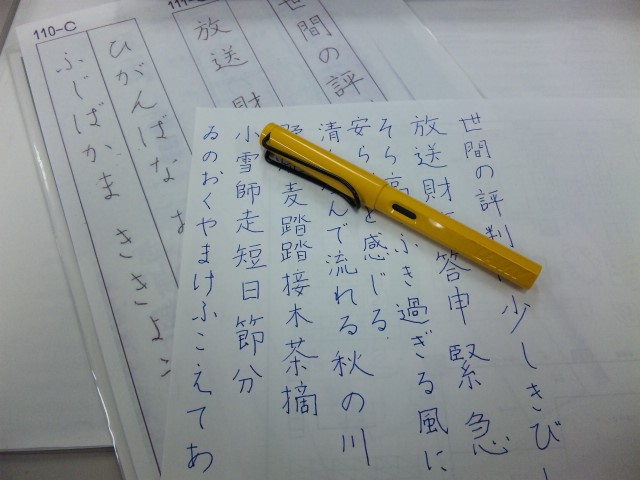 110-C
世間の評
放送 財
ひがんばな
ふじばかま ききょ
世間の評判 少しきびし
放送財 答申 緊急
そら高 ふき過ぎる風に
安ら を感じる
清 んで流れる秋の川
麦踏踏接木茶摘
小雪師走短日節分
ゐのおくやまけふこえてあ